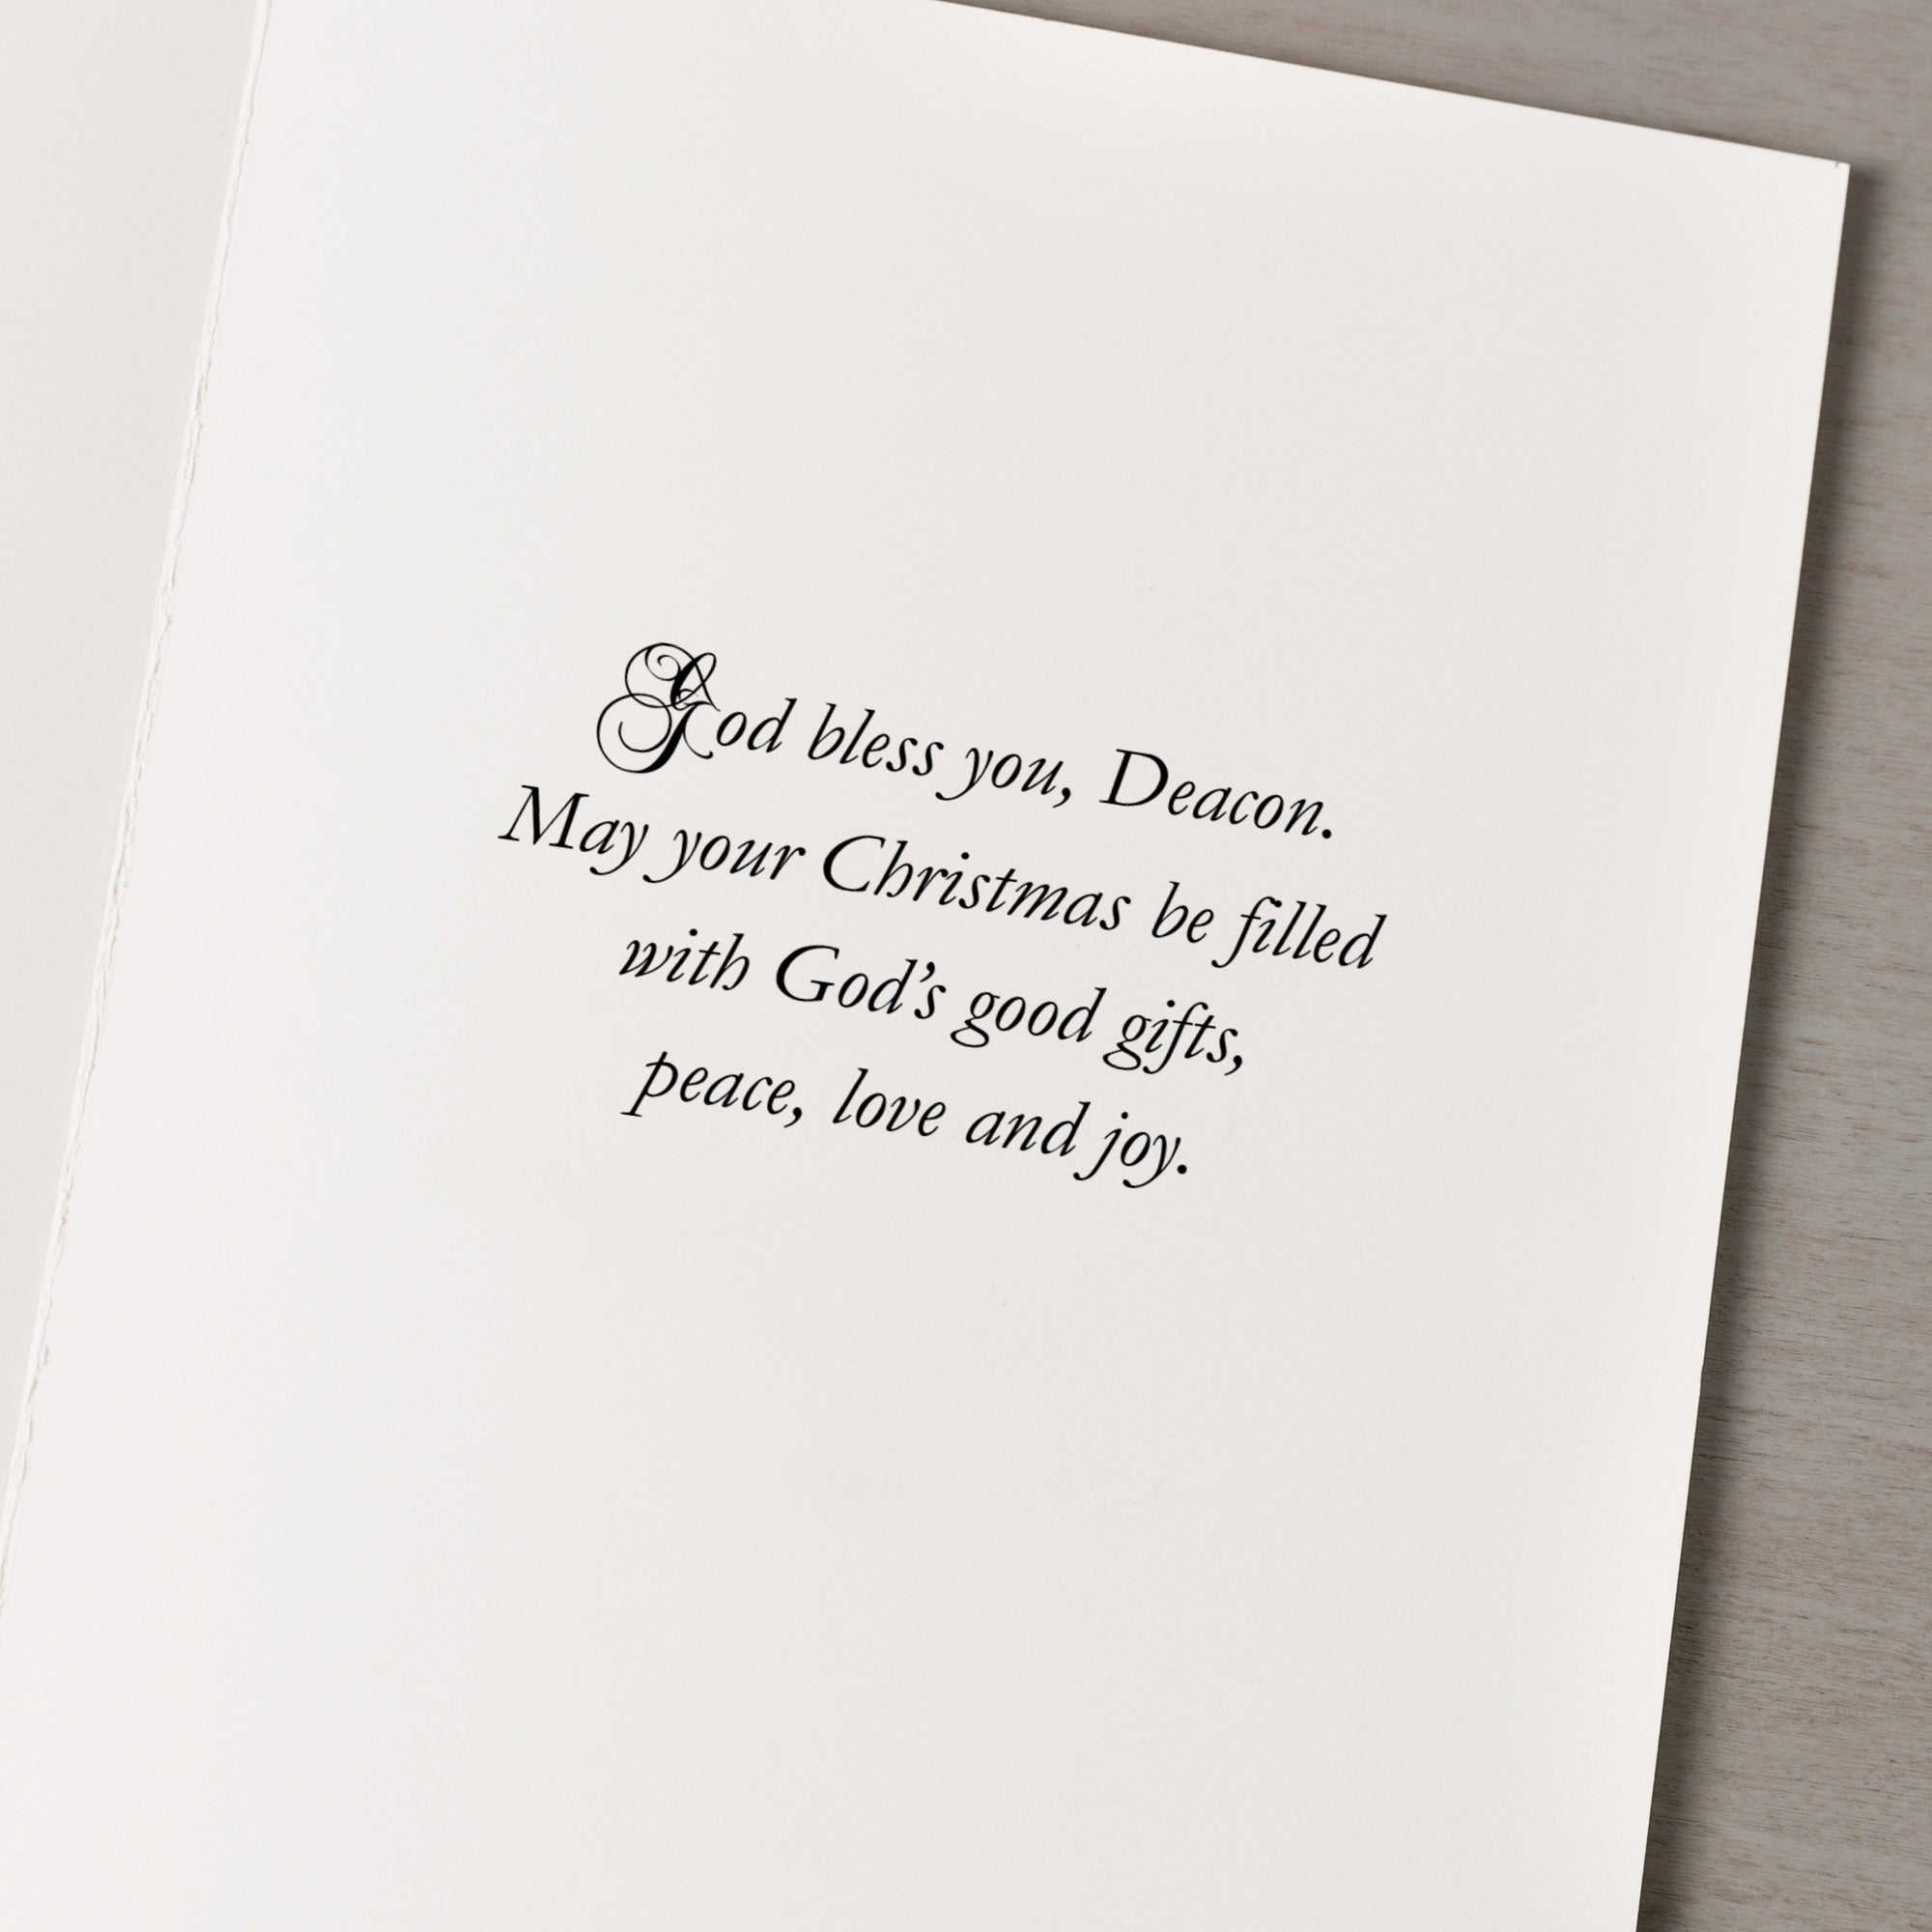 God bless you, Deacon.
May your Christmas be filled
with God’s good gifts,
peace, love and joy.